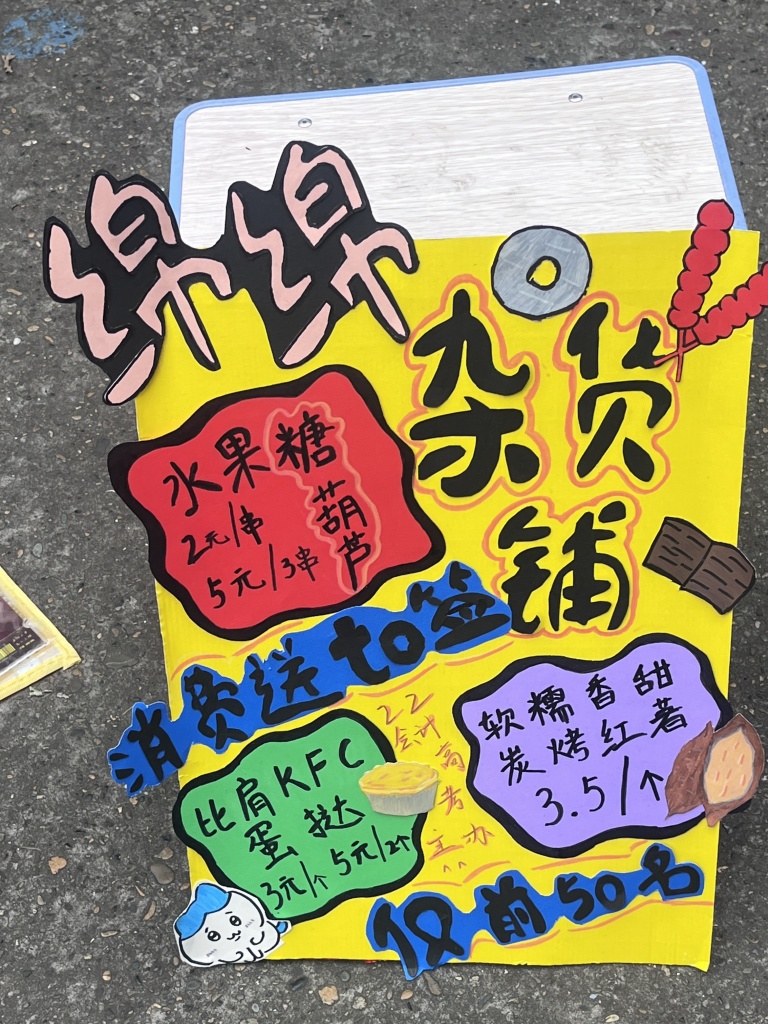 绵绵
杂货
铺
水果糖
葫芦
2元/串
5元/3串
消费送to签
软糯香甜
炭烤红薯
3.5/个
22
会计
高
考
主办
比肩KFC
蛋挞
3元/个 5元/2个
仅前50名